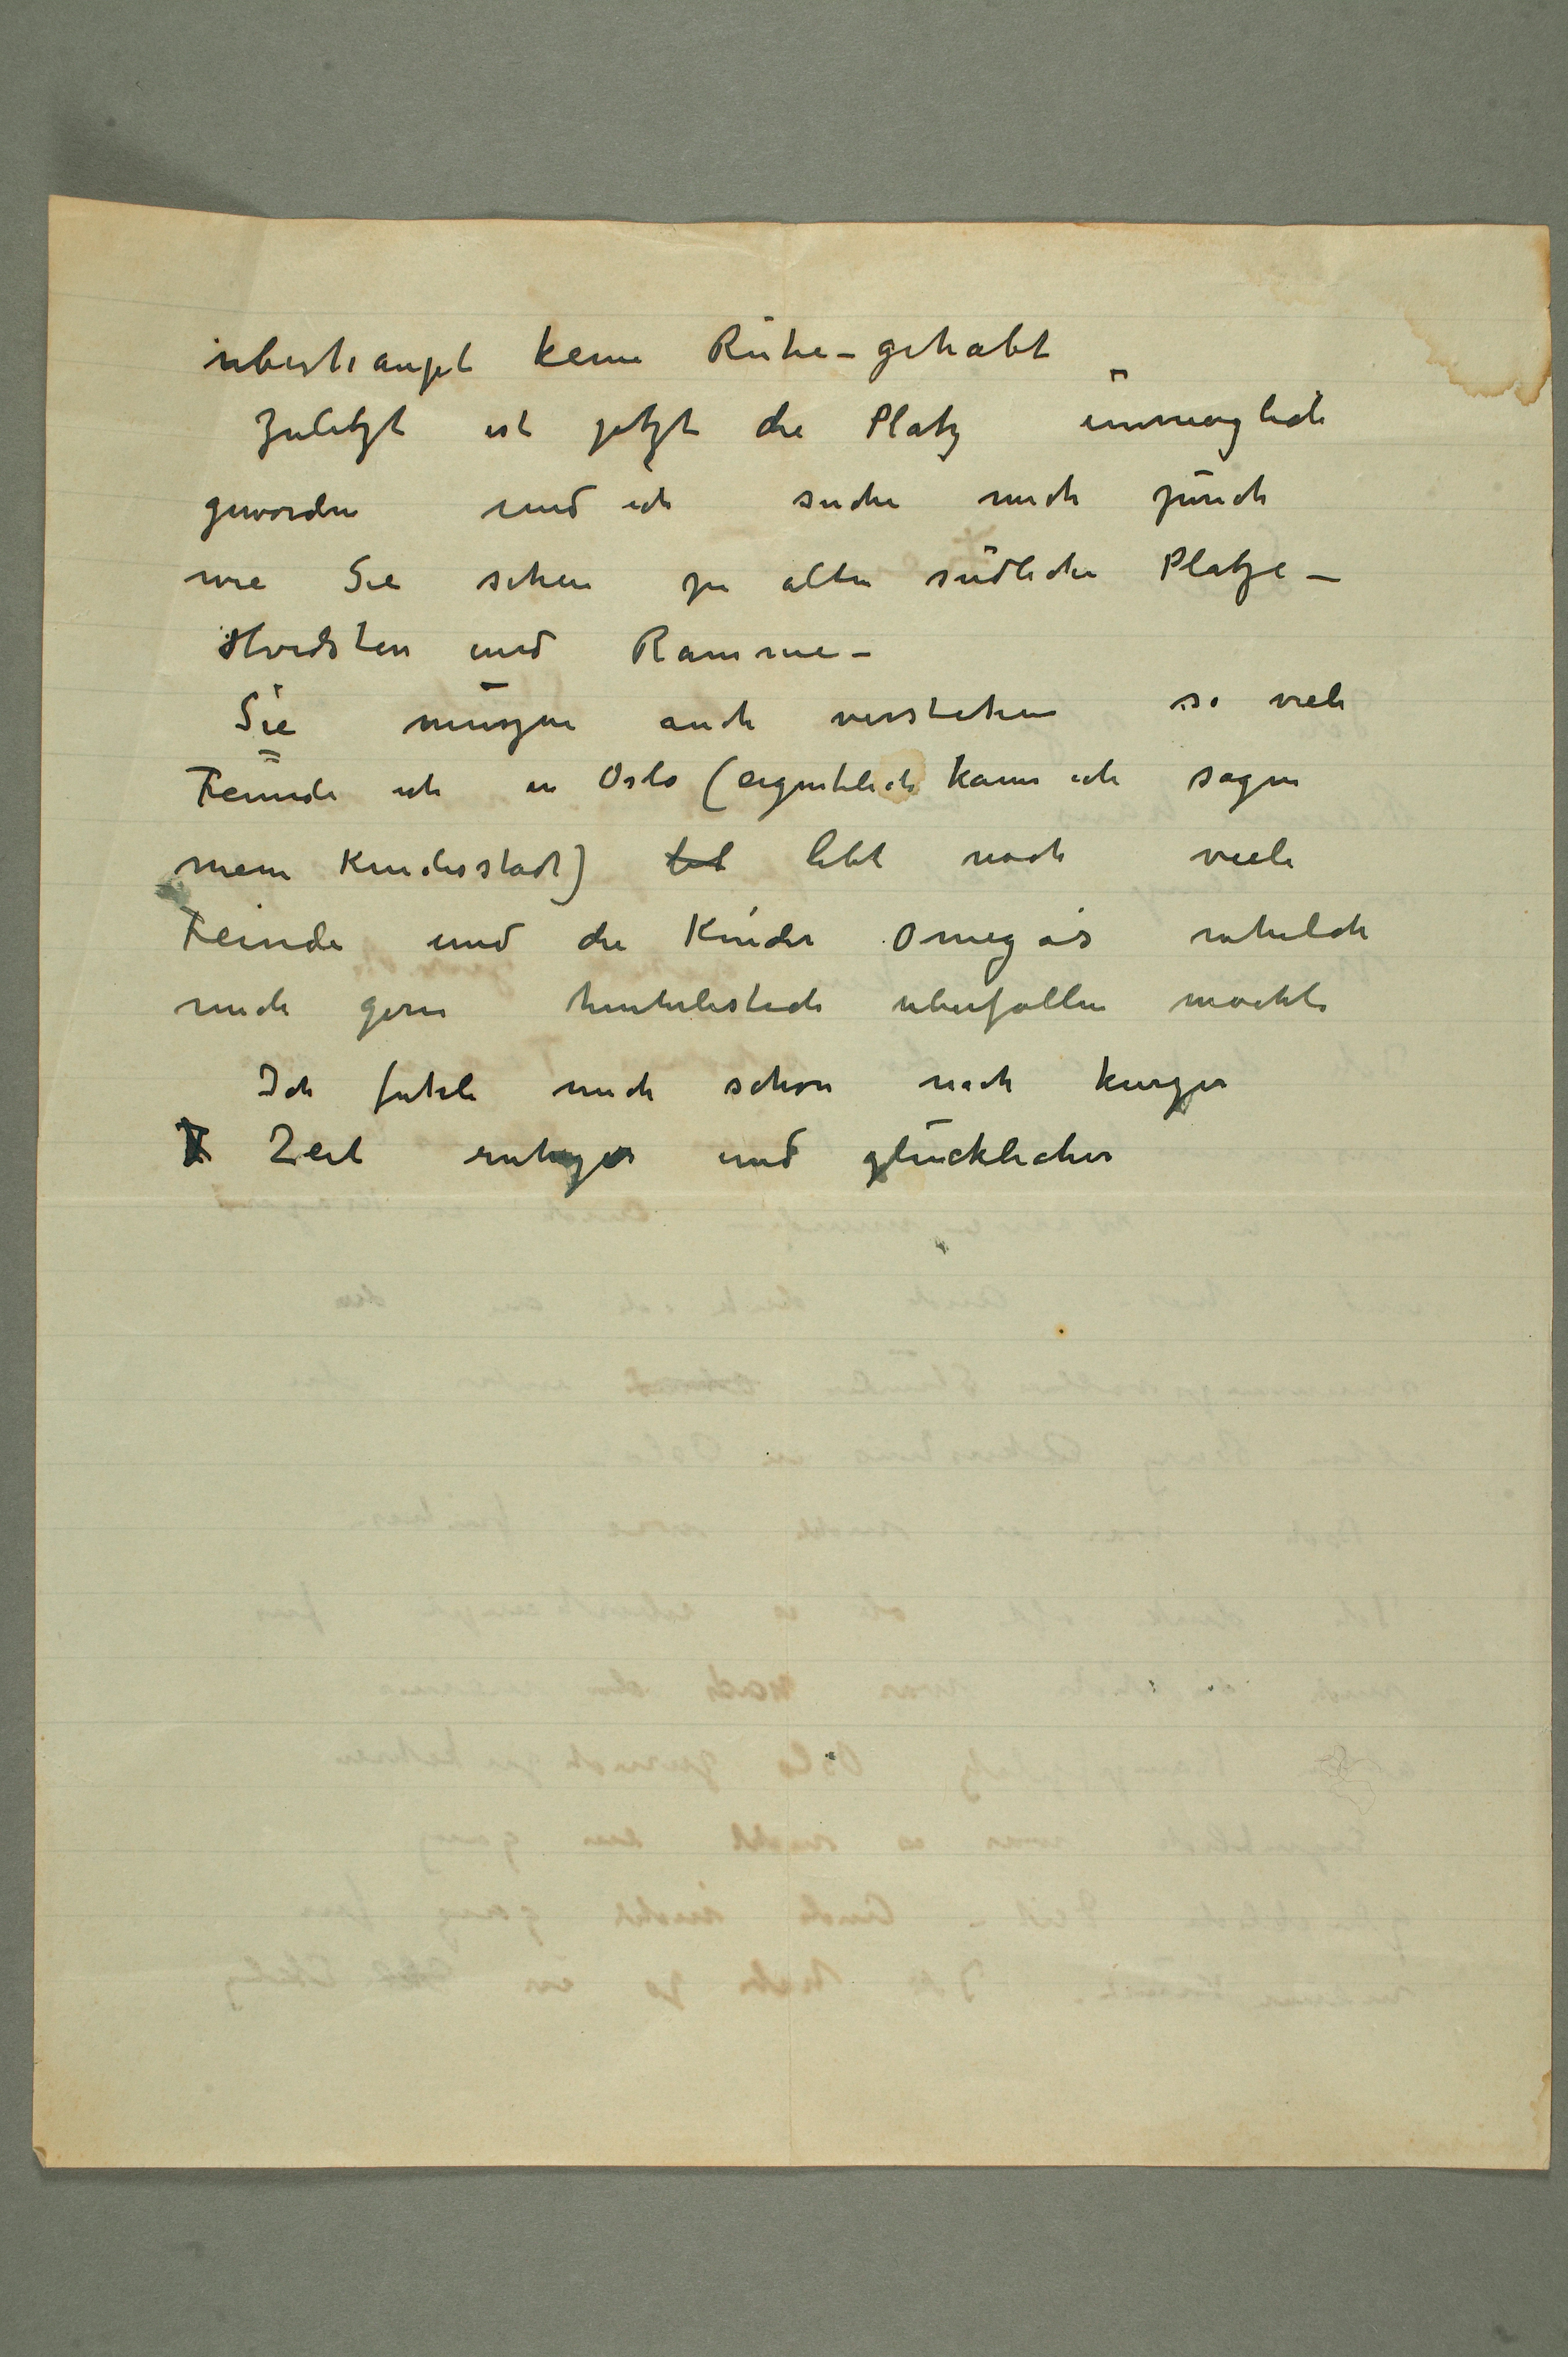 überhaupt keine Ruhe – gehabt
Zuletzt ist jetzt die Platz unmöglich
geworden und ich suche mich zurück
wie Sie sehen zu alten südliche Platze –
Hvidsten und Ramme –
Sie müszen auch verstehen so viele
Feinde ich in Oslo (eigentlich kann ich sagen
mein Kindesstadt) lebt noch viele
Feinde und die Kinder Omegas
mich gern hinterlistich uberfallen mochte
Ich fuhle mich schon nach kurzer
Zeit ruhiger und glücklicher